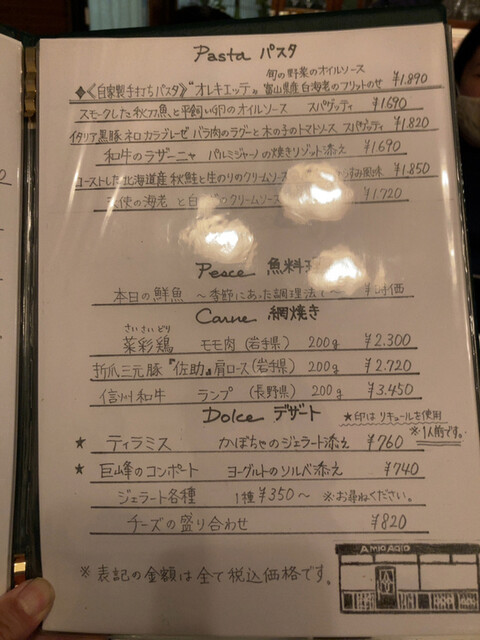 Pasta パスタ
旬の野菜のオイルソース
◆《自家製手打ちパスタ》"オレキエッテ" 富山県産 白海老のフリットのせ ¥1.890
スモークした秋刀魚、と平飼い卵のオイルソース スパゲッティ ¥1690
イタリア黒豚 ネロカラブレーゼ バラ肉のラグーと木の子のトマトソース スパゲッティ ¥1.820
和牛のラザーニャ パルミジャーノの焼きリゾット添え ¥1.690
ローストした北海道産 秋鮭と生のりのクリームソース すみ風味 ¥1.850
天使の海老 と白 のクリームソース ¥1.720
Pesce 魚料理
本日の鮮魚 〜季節にあった調理法で〜 ¥時価
Carne 網焼き
さいさいどり
菜彩鶏 モモ肉 (岩手県) 200g ¥2.300
折爪三元豚『佐助』肩ロース (岩手県) 200g ¥2.720
信州和牛 ランプ (長野県) 200g ¥3.450
Dolce デザート ★印は リキュールを使用
※1人前です。
★ ティラミス かぼちゃのジェラート添え ¥760
★ 巨峰のコンポート ヨーグルトのソルベ添え ¥740
ジェラート各種 1種 ¥350〜 ※お尋ねください。
チーズの盛り合わせ ¥820
※表記の金額は全て税込価格です。
AMICI AGIO